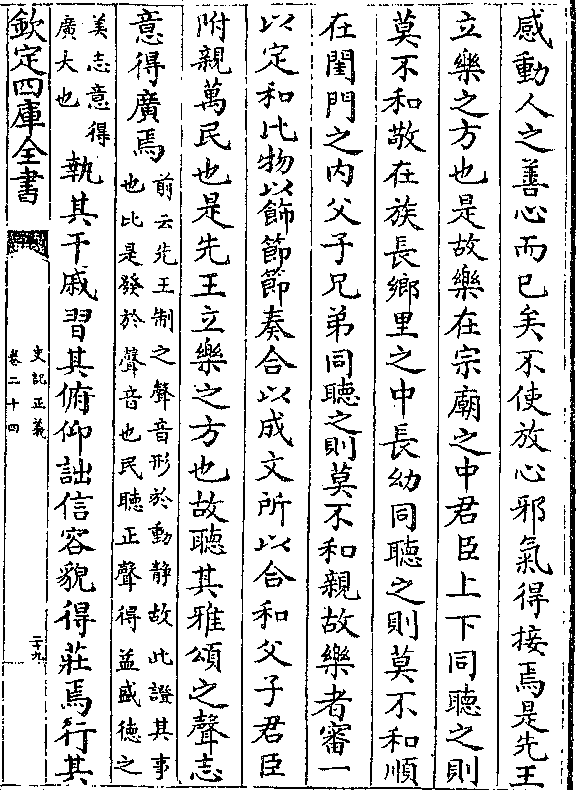 感動人之善心而已矣不使放心邪氣得接焉是先王
立樂之方也是故樂在宗廟之中君臣上下同聽之則
莫不和敬在族長鄉里之中長幼同聽之則莫不和順
在閨門之内父子兄弟同聽之則莫不和親故樂者審一
以定和比物以飾節節奏合以成文所以合和父子君臣
附親萬民也是先王立樂之方也故聽其雅頌之聲志
意得廣焉
前云先王制之聲音形於動靜故此證其事
也比是發於聲音也民聽正聲得益盛德之
美志意得
廣大也
執其干戚習其俯仰詘信容貌得莊焉行其
欽定四庫全書
史記正義
卷二十四
二十九